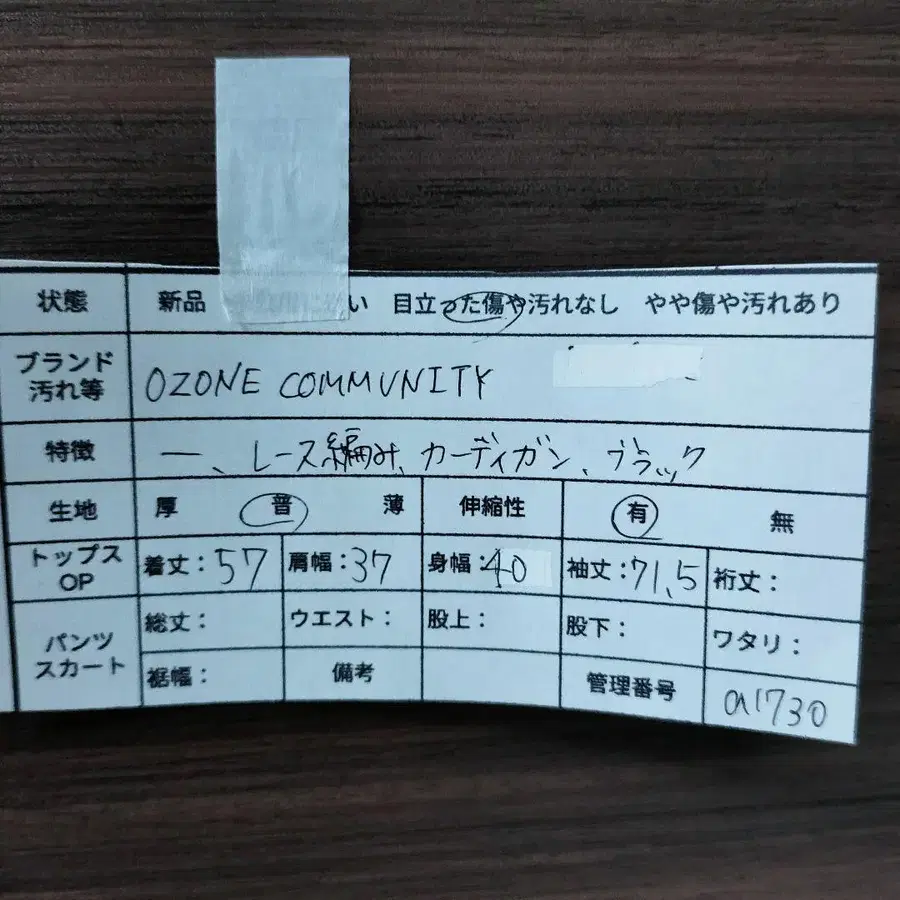 状態 新品 い 目立った傷や汚れなし やや傷や汚れあり
ブランド
汚れ等 OZONE COMMUNITY
特徴 ー、レース編み、カーディガン、ブラック
生地 厚 普 薄 伸縮性 有 無
トップス
OP 着丈:57 肩幅:37 身幅:40 袖丈:71.5 裄丈:
パンツ
スカート 総丈: ウエスト: 股上: 股下: ワタリ:
裾幅: 備考 管理番号 a1730